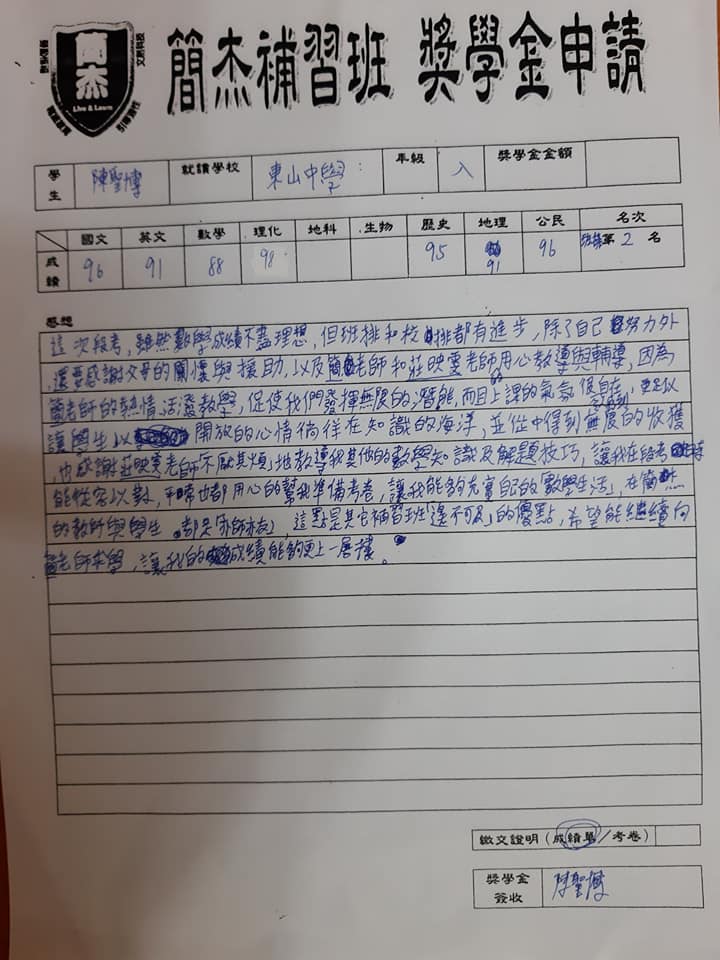 簡杰
Live & Learn
簡杰補習班 獎學金申請
學生 陳聖博 就讀學校 東山中學 年級 八 獎學金金額
國文 英文 數學 理化 地科 生物 歷史 地理 公民 名次
成績 96 91 88 98 95 91 96 班排第 2 名
感想
這次段考,雖然數學成績不盡理想,但班排和校排都有進步,除了自己努力外
,還要感謝父母的關懷與援助,以及簡老師和莊映雯老師用心教導與輔導,因為
簡老師的熱情活潑教學,促使我們發揮無限的潛能,而且上課的氣氛很自在,更足以
讓學生以開放的心情徜徉在知識的海洋,並從中得到無價的收獲
,也感謝莊映雯老師「不厭其煩」地教導我其他的數學知識及解題技巧,讓我在段考
能從容以對,平常也都用心的幫我準備考卷,讓我能夠充實自己的「數學生活」,在簡杰
的教師與學生,都是亦師亦友,這點是其它補習班「遙不可及」的優點,希望能繼續向
簡老師求學,讓我的成績能夠更上一層樓。
繳交證明(成績單/考卷)
獎學金簽收 陳聖博